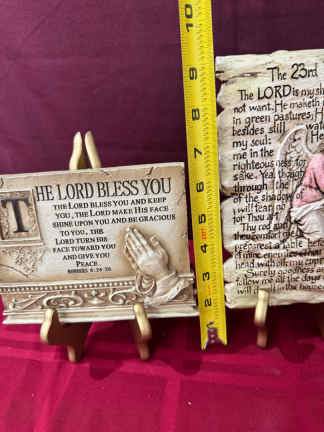 THE LORD BLESS YOU
THE LORD BLESS YOU AND KEEP
YOU, THE LORD MAKE HIS FACE
SHINE UPON YOU AND BE GRACIOUS
TO YOU, THE
LORD TURN HIS
FACE TOWARD YOU
AND GIVE YOU
PEACE.
NUMBERS 6:24-26
10
9
8
7
6
5
4
3
2
1
The 23rd
The LORD is my sh
not want. He maketh
in green pastures: H
besides still wat
my soul: He
me in the
righteousness for
sake. Yea, though
through the
of the shadow of
I will fear no
for Thou art
Thy rod and
comfort me
preparest a table befo
of mine enemies
head with oil; my cup
Surely goodness a
follow me all the days
will in the house